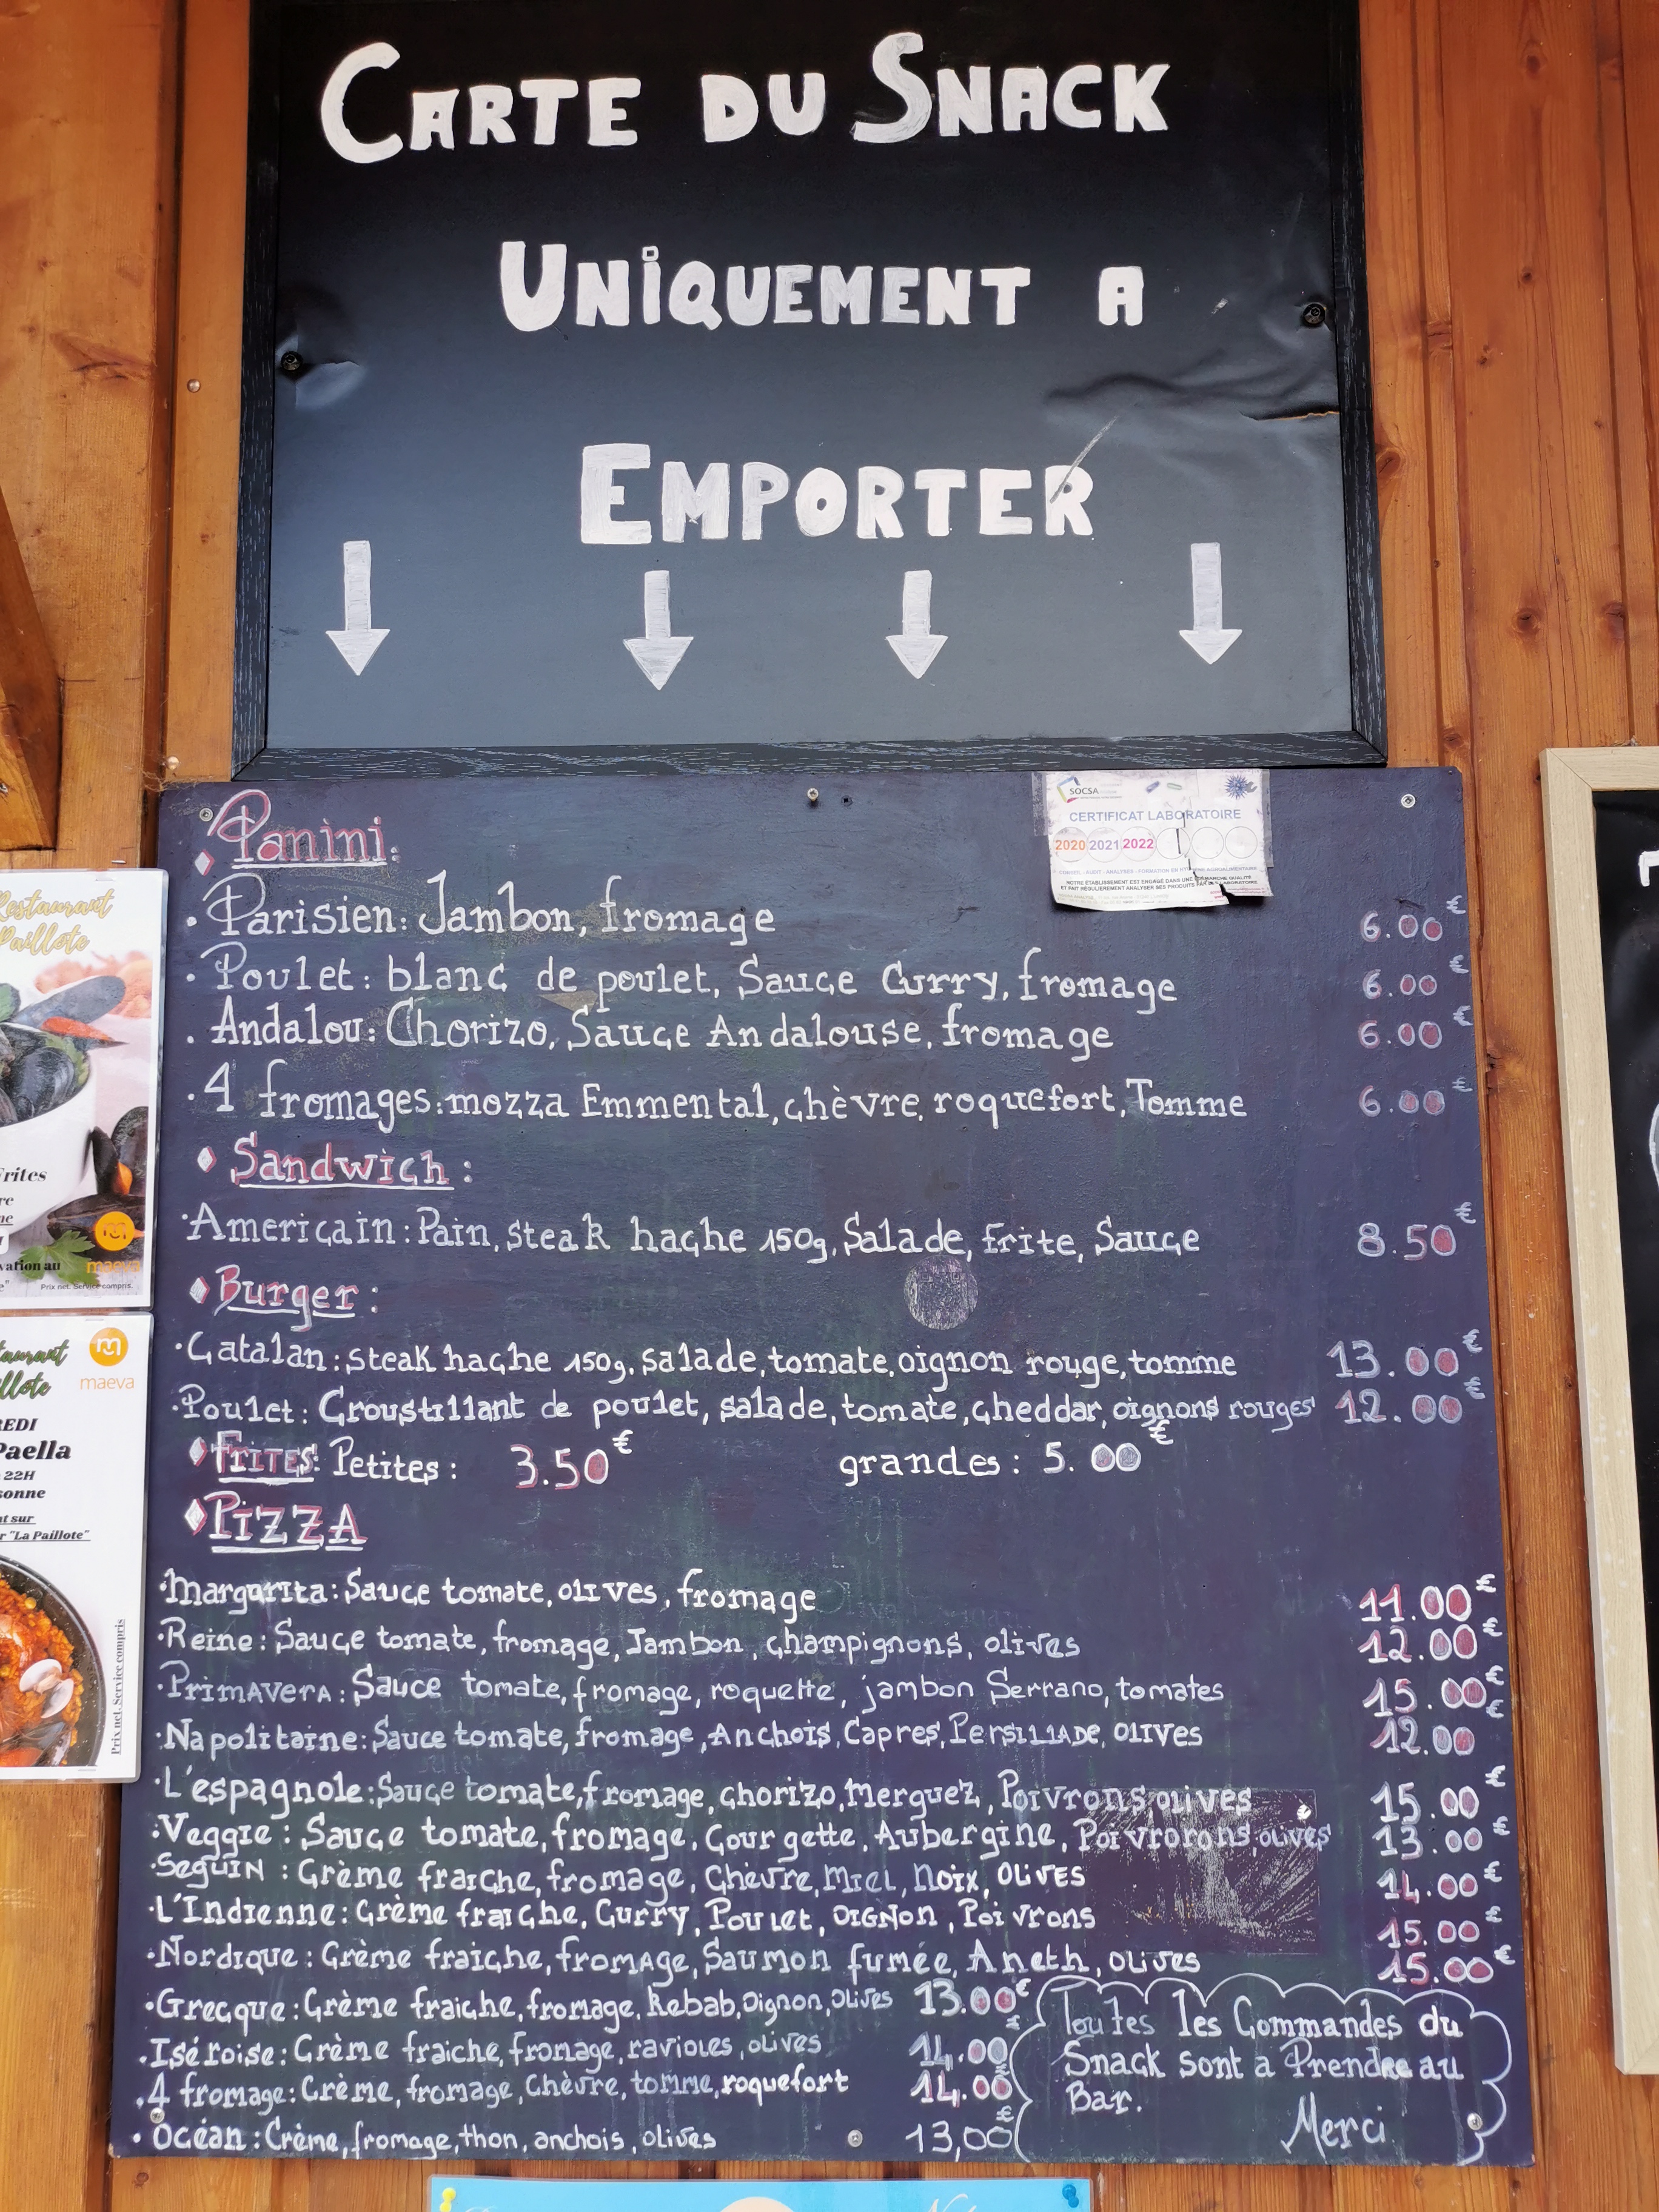 CARTE DU SNACK
UNIQUEMENT A
EMPORTER
SOCSA
CERTIFICAT LABORATOIRE
2020 2021 2022
CONSEIL - AUDIT - ANALYSES - FORMATION EN HYGIÈNE AGROALIMENTAIRE
NOTRE ÉTABLISSEMENT EST ENGAGÉ DANS UNE DÉMARCHE QUALITÉ
ET FAIT RÉGULIÈREMENT ANALYSER SES PRODUITS PAR LABORATOIRE
Panini:
. Parisien: Jambon, fromage 6.00€
. Poulet: blanc de poulet, Sauce Curry, fromage 6.00€
. Andalou: Chorizo, Sauce Andalouse, fromage 6.00€
. 4 fromages: mozza Emmental, chèvre, roquefort, Tomme 6.00€
Sandwich:
. Americain: Pain, steak hache 150g, Salade, frite, Sauce 8.50€
Burger:
. Catalan: steak hache 150g, salade, tomate, oignon rouge, tomme 13.00€
. Poulet: Croustillant de poulet, salade, tomate, cheddar, oignons rouges 12.00€
FRITES: Petites: 3.50€ grandes: 5.00€
PIZZA
. Margarita: Sauce tomate, olives, fromage 11.00€
. Reine: Sauce tomate, fromage, Jambon, champignons, olives 12.00€
. PrimAverA: Sauce tomate, fromage, roquette, jambon Serrano, tomates 15.00€
. Napolitaine: Sauce tomate, fromage, Anchois, Capres, PERSILLADE, OLIVES 12.00€
. L'espagnole: Sauce tomate, fromage, chorizo, Merguez, Poivrons olives 15.00€
. Veggie: Sauce tomate, fromage, Courgette, Aubergine, Poivrorons olives 13.00€
. SeGUIN: Crème fraiche, fromage, Chèvre, Miel, Noix, OLIVES 14.00€
. L'Indienne: Crème fraiche, Curry, Poulet, OIGNON, Poivrons 15.00€
. Nordique: Crème fraiche, fromAge, Saumon fumée, Aneth, olives 15.00€
. Grecque: Crème fraiche, fromage, Kebab, Oignon, Olives 13.00€
. Iséroise: Crème fraiche, fromage, ravioles, olives 14.00€
. 4 fromage: Crème, fromage, Chèvre, tomme, roquefort 14.00€
. Océan: Crème, fromage, thon, anchois, olives 13,00€
Toutes les Commandes du
Snack sont a Prendre au
Bar.
Merci
Restaurant
Paillote
Frites
vation au
maeva
Prix net. Service compris.
maeva
REDI
Paella
22H
sonne
t sur
r "La Paillote"
Prix net. Service compris